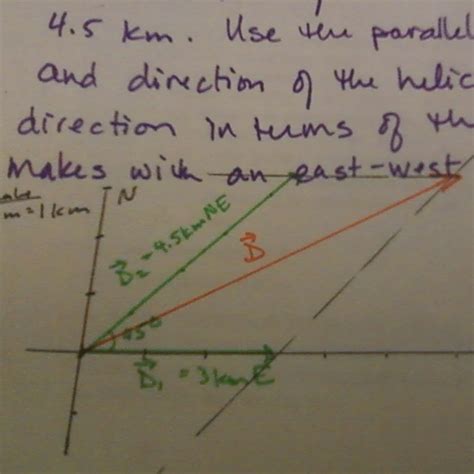 4.5 km. Use the parallel
and direction of the helic
direction in terms of th
makes with an east-west
m=1km
N
D₂ = 4.5km NE
D
45°
D₁ = 3km E